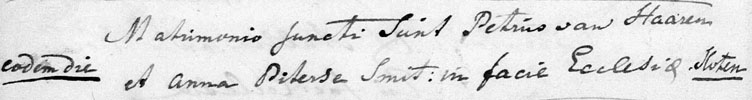 Matrimonio juncti Sunt Petrus van Haaren
eodem die et Anna Piterse Smit: in facie Ecclesiæ Koten